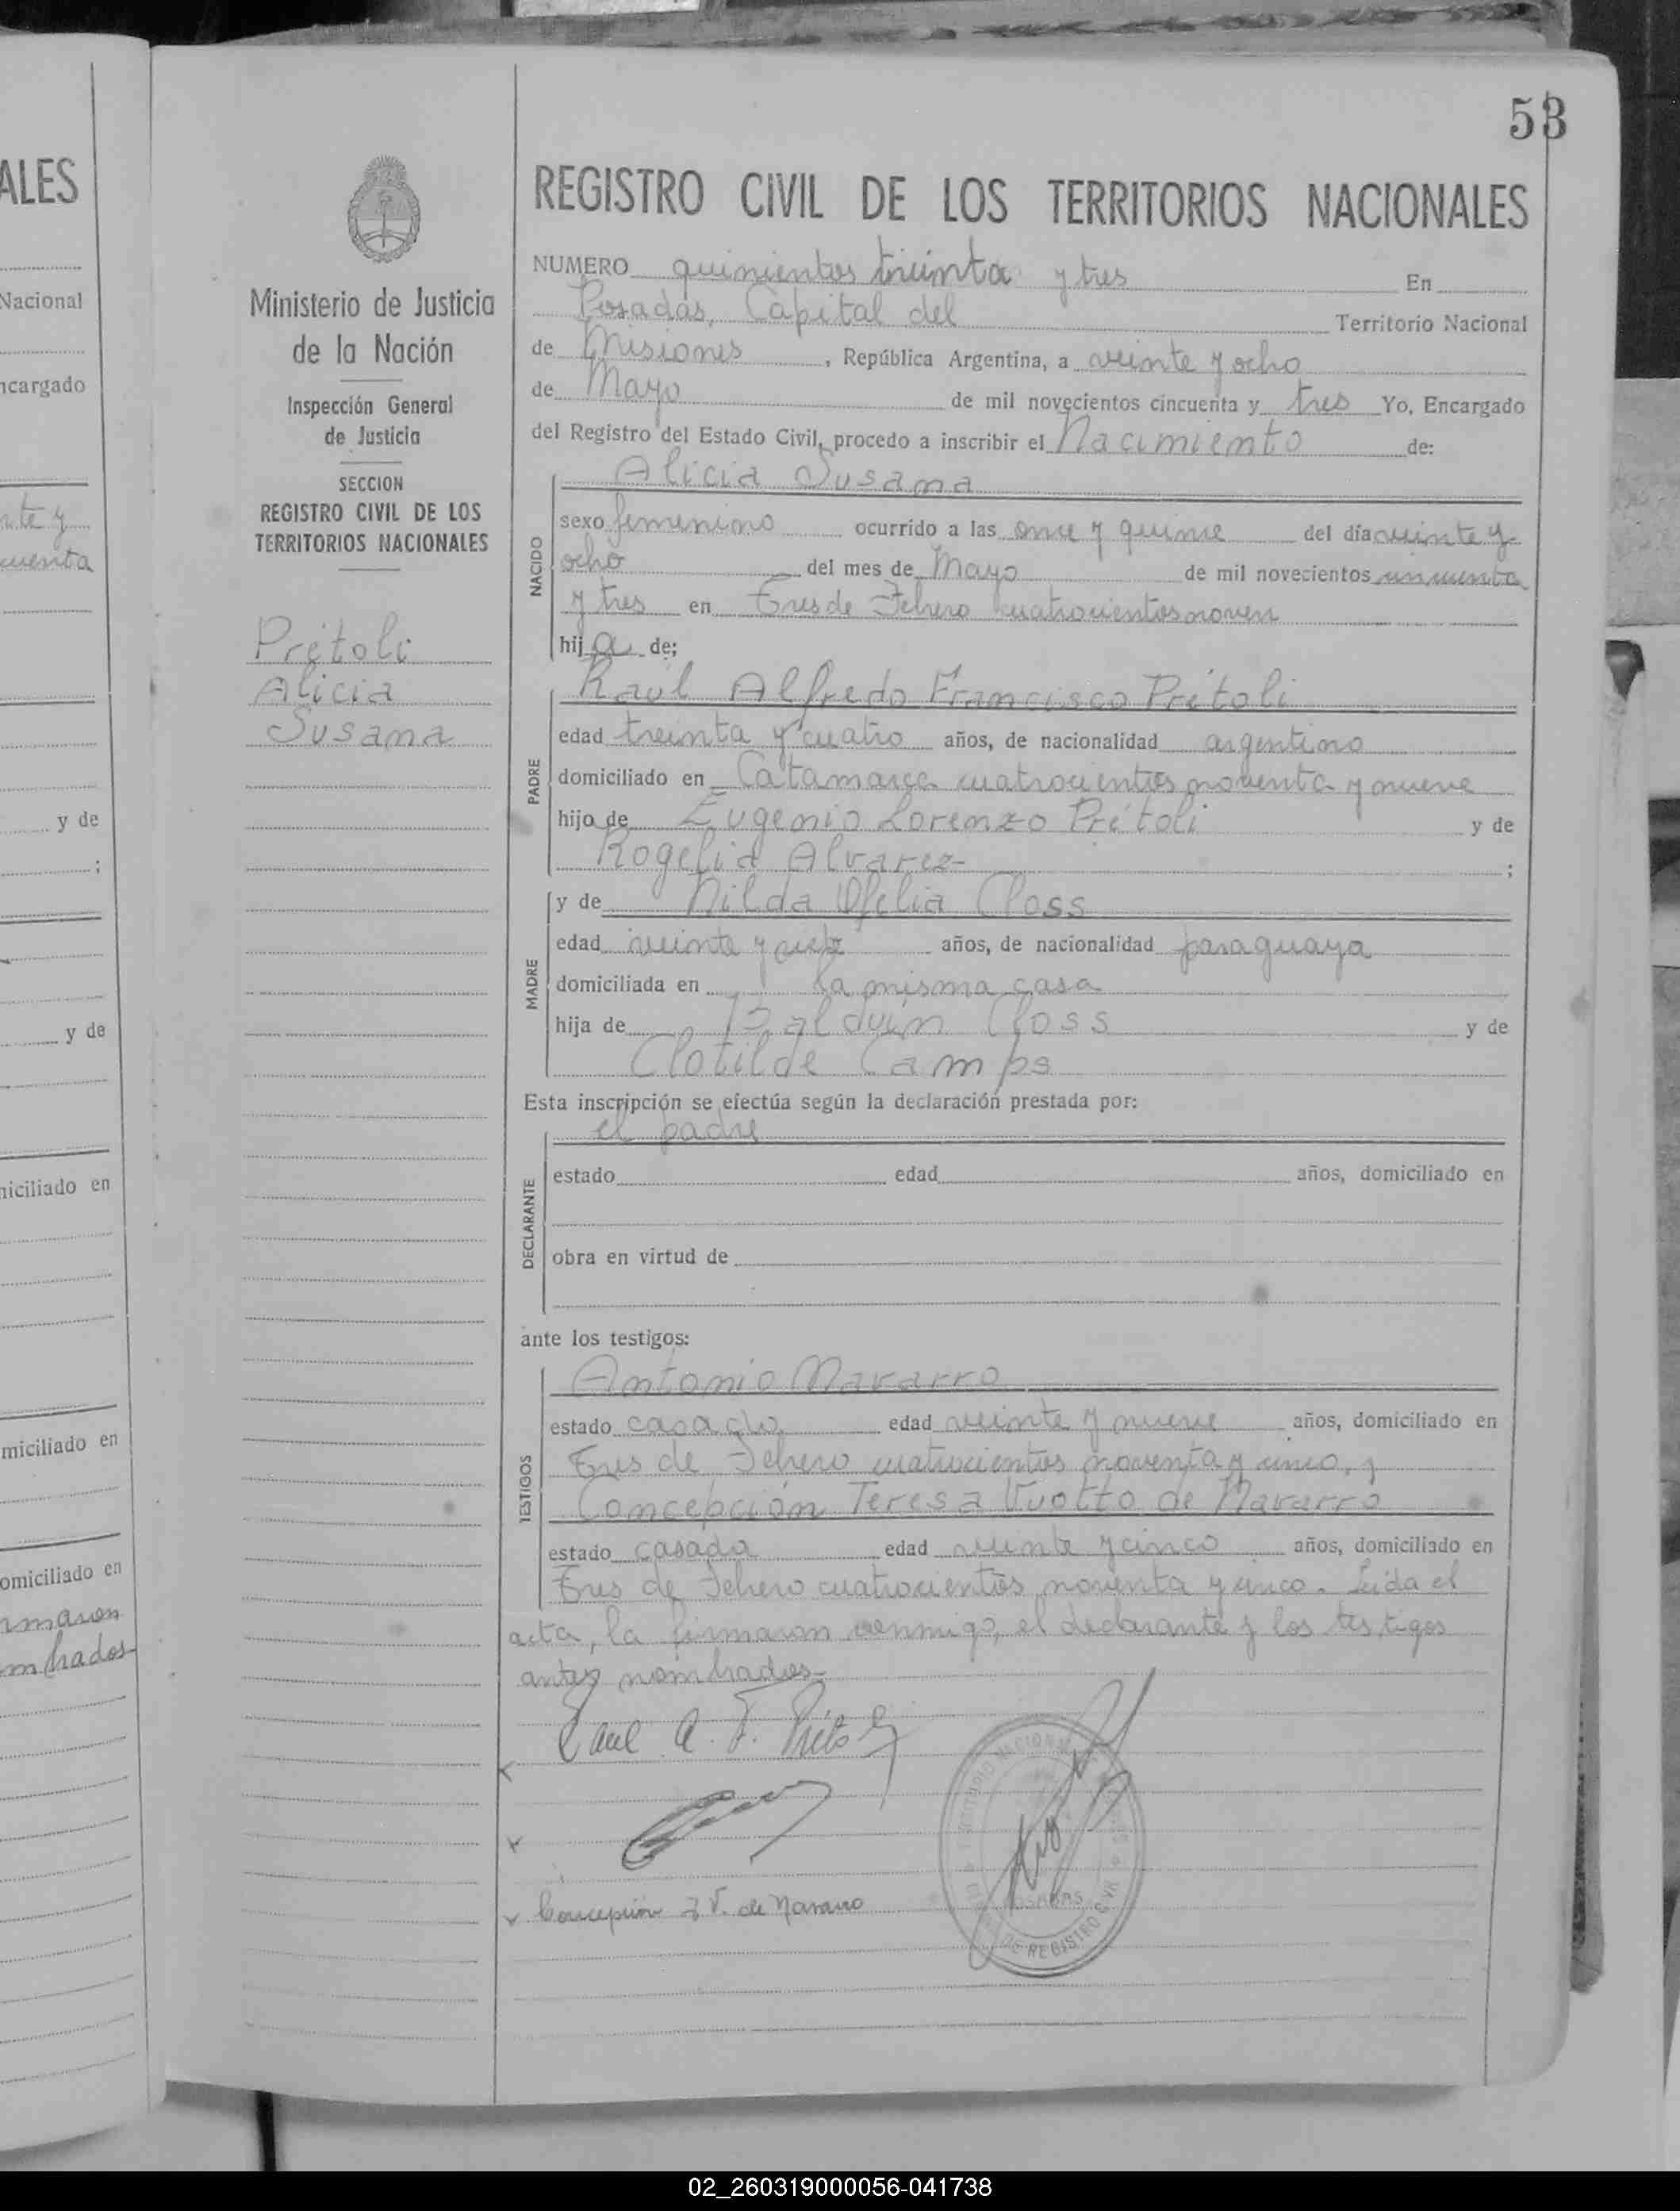 53
REGISTRO CIVIL DE LOS TERRITORIOS NACIONALES
Ministerio de Justicia
de la Nación
Inspección General
de Justicia
SECCION
REGISTRO CIVIL DE LOS
TERRITORIOS NACIONALES
Prétoli
Alicia
Susana
NUMERO quinientos treinta y tres En
Posadas, Capital del Territorio Nacional
de Misiones, República Argentina, a veinte y ocho
de Mayo de mil novecientos cincuenta y tres Yo, Encargado
del Registro del Estado Civil, procedo a inscribir el Nacimiento de:
Alicia Susana
NACIDO
sexo femenino ocurrido a las once y quince del día veinte y
ocho del mes de Mayo de mil novecientos cincuenta
y tres en Tres de Febrero cuatrocientos noven
hija de;
PADRE
Raúl Alfredo Francisco Prétoli
edad treinta y cuatro años, de nacionalidad argentino
domiciliado en Catamarca cuatrocientos noventa y nueve
hijo de Eugenio Lorenzo Prétoli y de
Rogelia Alvarez- ;
MADRE
y de Nilda Ofelia Closs
edad veinte y siete años, de nacionalidad paraguaya
domiciliada en la misma casa
hija de Balduin Closs y de
Clotilde Camps
Esta inscripción se efectúa según la declaración prestada por:
el padre
DECLARANTE
estado edad años, domiciliado en
obra en virtud de
ante los testigos:
TESTIGOS
Antonio Navarro
estado casado edad veinte y nueve años, domiciliado en
Tres de Febrero cuatrocientos noventa y cinco, y
Concepción Teresa Vuotto de Navarro
estado casada edad veinte y cinco años, domiciliado en
Tres de Febrero cuatrocientos noventa y cinco. Leida el
acta, la firmaron conmigo, el declarante y los testigos
antes nombrados-
Raul A. F. Prétoli
Concepción T V. de Navarro
POSADAS
DE REGISTRO CIVIL
ALES
Nacional
ncargado
nte y
cuenta
y de
;
y de
niciliado en
miciliado en
omiciliado en
rmaron
mbrados-
02_260319000056-041738